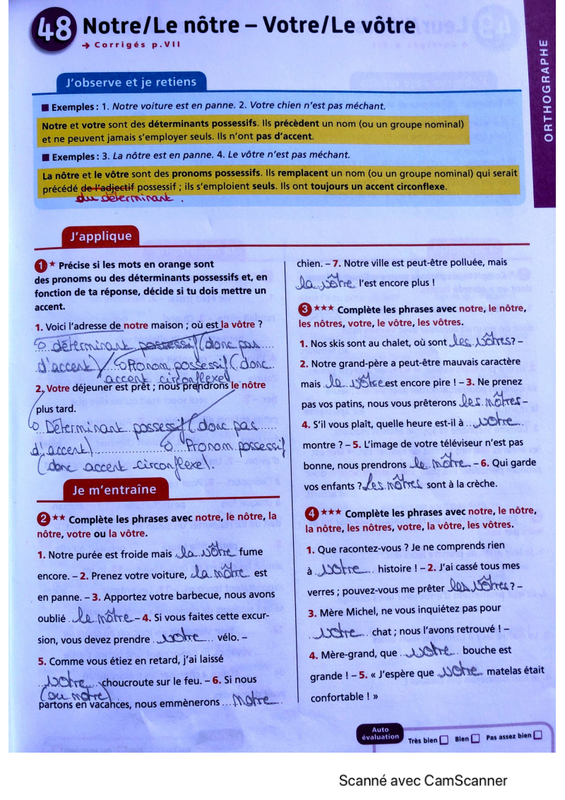 48 Notre/Le nôtre – Votre/Le vôtre
→ Corrigés p.VII
ORTHOGRAPHE
J'observe et je retiens
■ Exemples : 1. Notre voiture est en panne. 2. Votre chien n'est pas méchant.
Notre et votre sont des déterminants possessifs. Ils précèdent un nom (ou un groupe nominal)
et ne peuvent jamais s'employer seuls. Ils n'ont pas d'accent.
■ Exemples : 3. La nôtre est en panne. 4. Le vôtre n'est pas méchant.
La nôtre et le vôtre sont des pronoms possessifs. Ils remplacent un nom (ou un groupe nominal) qui serait
précédé de l'adjectif possessif ; ils s'emploient seuls. Ils ont toujours un accent circonflexe.
du déterminant.
J'applique
1 * Précise si les mots en orange sont
des pronoms ou des déterminants possessifs et, en
fonction de ta réponse, décide si tu dois mettre un
accent.
1. Voici l'adresse de notre maison ; où est la vôtre ?
déterminant possessif (donc pas
d'accent) Pronom possessif (donc
accent circonflexe)
2. Votre déjeuner est prêt ; nous prendrons le nôtre
plus tard.
Déterminant possessif (donc pas
d'accent) Pronom possessif
(donc accent circonflexe).
Je m'entraine
2 ** Complète les phrases avec notre, le nôtre, la
nôtre, votre ou la vôtre.
1. Notre purée est froide mais la vôtre fume
encore. – 2. Prenez votre voiture, la nôtre est
en panne. – 3. Apportez votre barbecue, nous avons
oublié le nôtre – 4. Si vous faites cette excur-
sion, vous devez prendre votre vélo. –
5. Comme vous étiez en retard, j'ai laissé
votre choucroute sur le feu. – 6. Si nous
(ou notre)
partons en vacances, nous emmènerons notre
chien. – 7. Notre ville est peut-être polluée, mais
la vôtre l'est encore plus !
3 *** Complète les phrases avec notre, le nôtre,
les nôtres, votre, le vôtre, les vôtres.
1. Nos skis sont au chalet, où sont les vôtres? –
2. Notre grand-père a peut-être mauvais caractère
mais la vôtre est encore pire ! – 3. Ne prenez
pas vos patins, nous vous prêterons les nôtres –
4. S'il vous plaît, quelle heure est-il à votre
montre ? – 5. L'image de votre téléviseur n'est pas
bonne, nous prendrons le nôtre – 6. Qui garde
vos enfants ? Les nôtres sont à la crèche.
4 *** Complète les phrases avec notre, le nôtre,
la nôtre, les nôtres, votre, la vôtre, les vôtres.
1. Que racontez-vous ? Je ne comprends rien
à votre histoire ! – 2. J'ai cassé tous mes
verres ; pouvez-vous me prêter les vôtres? –
3. Mère Michel, ne vous inquiétez pas pour
votre chat ; nous l'avons retrouvé ! –
4. Mère-grand, que votre bouche est
grande ! – 5. « J'espère que votre matelas était
confortable ! »
Auto
évaluation
Très bien □ Bien □ Pas assez bien □
Scanné avec CamScanner